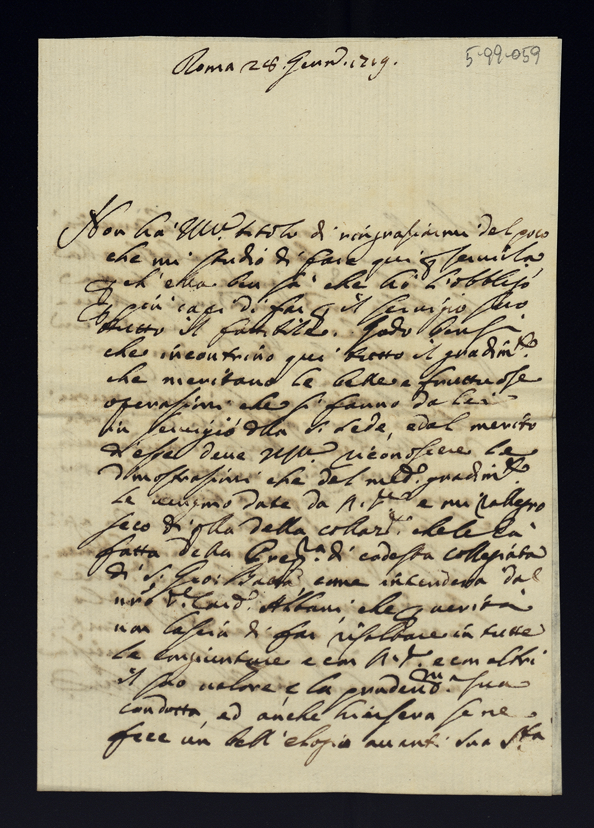 Roma 28. Genn.º 1719.
5-99-059
Non ha VS Ill. titolo di ringraziarmi del poco
che mi studio di fare qui per servirla
ch'ella ben sà che hò l'obbligo
di far per il servizio suo
tutto il fattibile. Godo bensì
che incontrino qui tutto il gradim.to
che meritano le belle e fruttuose
operazioni che si fanno da lei
in servigio della S. Sede, e dal merito
d'esse deve riconoscere le
dimostrazioni che del med.º gradim.to
le vengono date da N. S.re e mi rallegro
seco di q.lla della collaz.e che le hà
fatta della di codesta collegiata
di S. Gio: Batt.a come intenderà dal
nr̃o S.r Card. Albani che per verità
non lascia di far risaltare in tutte
le congiunture e con N. S.re e con altri
il suo valore, e la prudent.ma sua
condotta, ed anche hiersera se ne
fece un bell'elogio avanti Sua S.tà